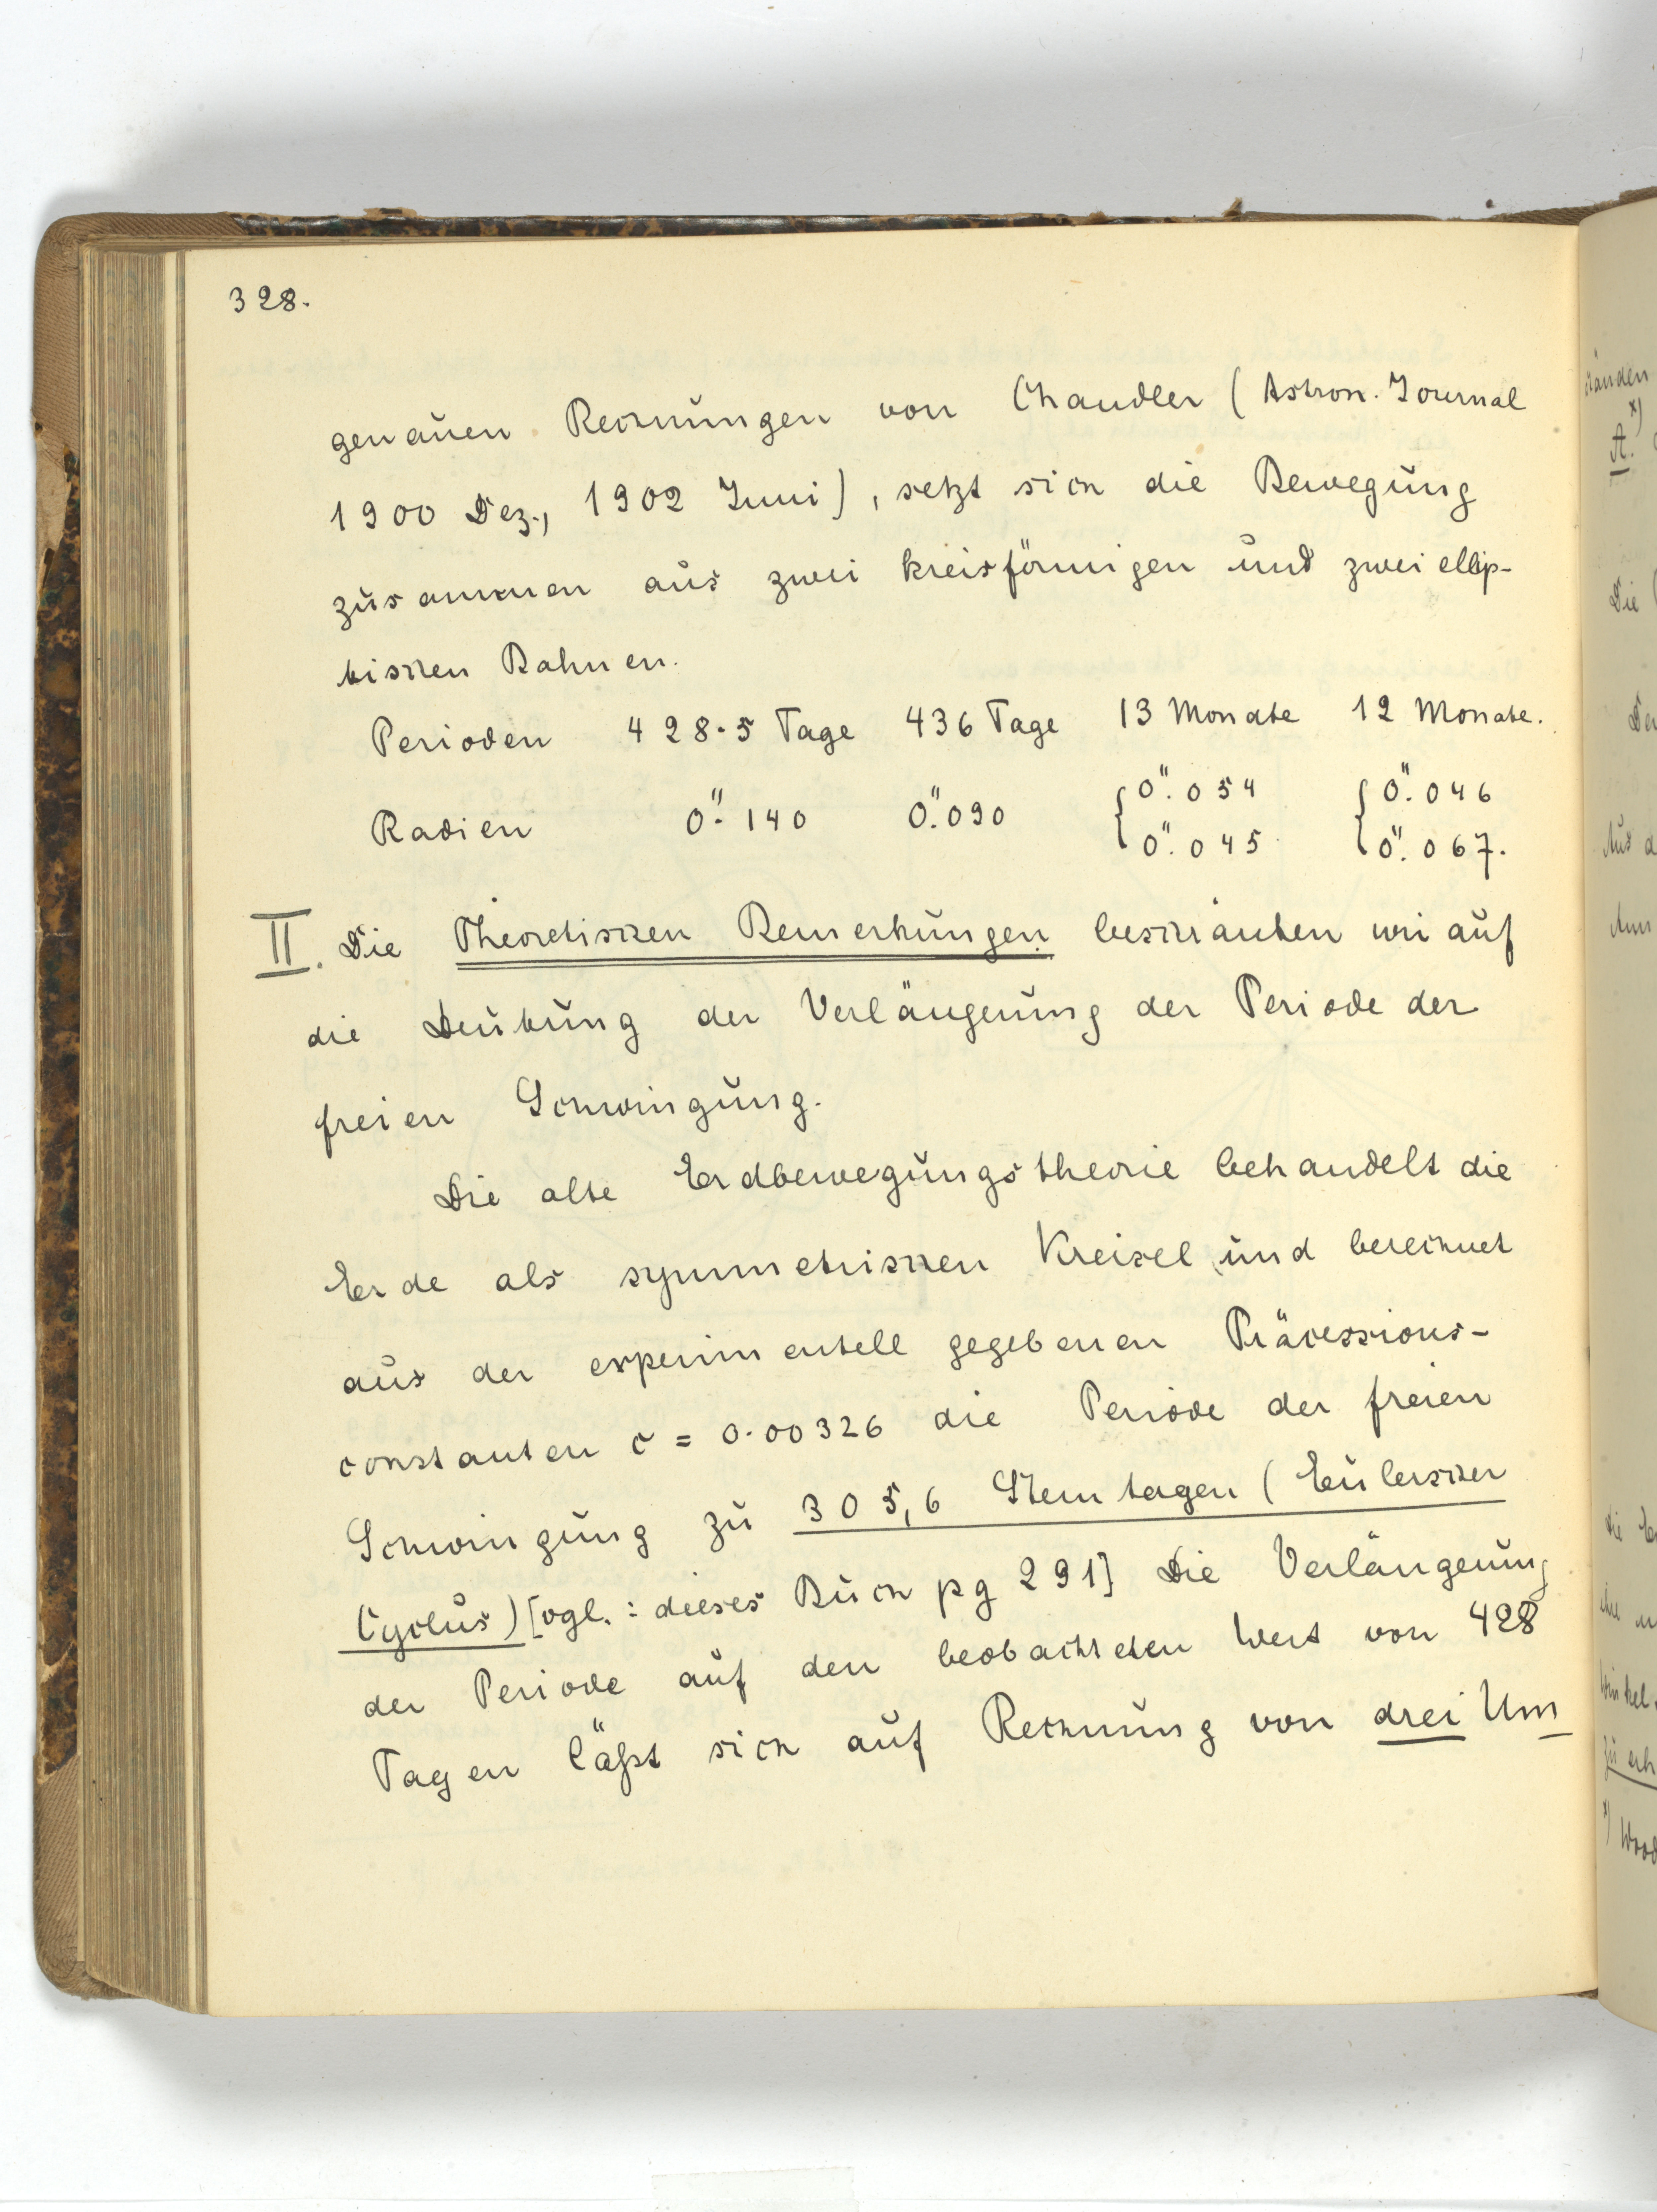 328.
genauen Rechnungen von Chandler (Astron. Journal
1900 Dez., 1902 Juni), setzt sich die Bewegung
zusammen aus zwei kreisförmigen und zwei ellip-
tischen Bahnen.
Perioden 428.5 Tage 436 Tage 13 Monate 12 Monate.
Radien 0".140 0".090 { 0".054 0".045 { 0".046 0".067.
II. Die Theoretischen Bemerkungen beschränken wir auf
die Deutung der Verlängerung der Periode der
freien Schwingung.
Die alte Erdbewegungstheorie behandelt die
Erde als symmetrischen Kreisel und berechnet
aus der experimentell gegebenen Präcessions-
constanten c = 0.00326 die Periode der freien
Schwingung zu 305,6 Sterntagen (Eulerscher
Cyclus) [vgl.: dieses Buch pg 291] Die Verlängerung
der Periode auf den beobachteten Wert von 428
Tagen läßt sich auf Rechnung von drei Um